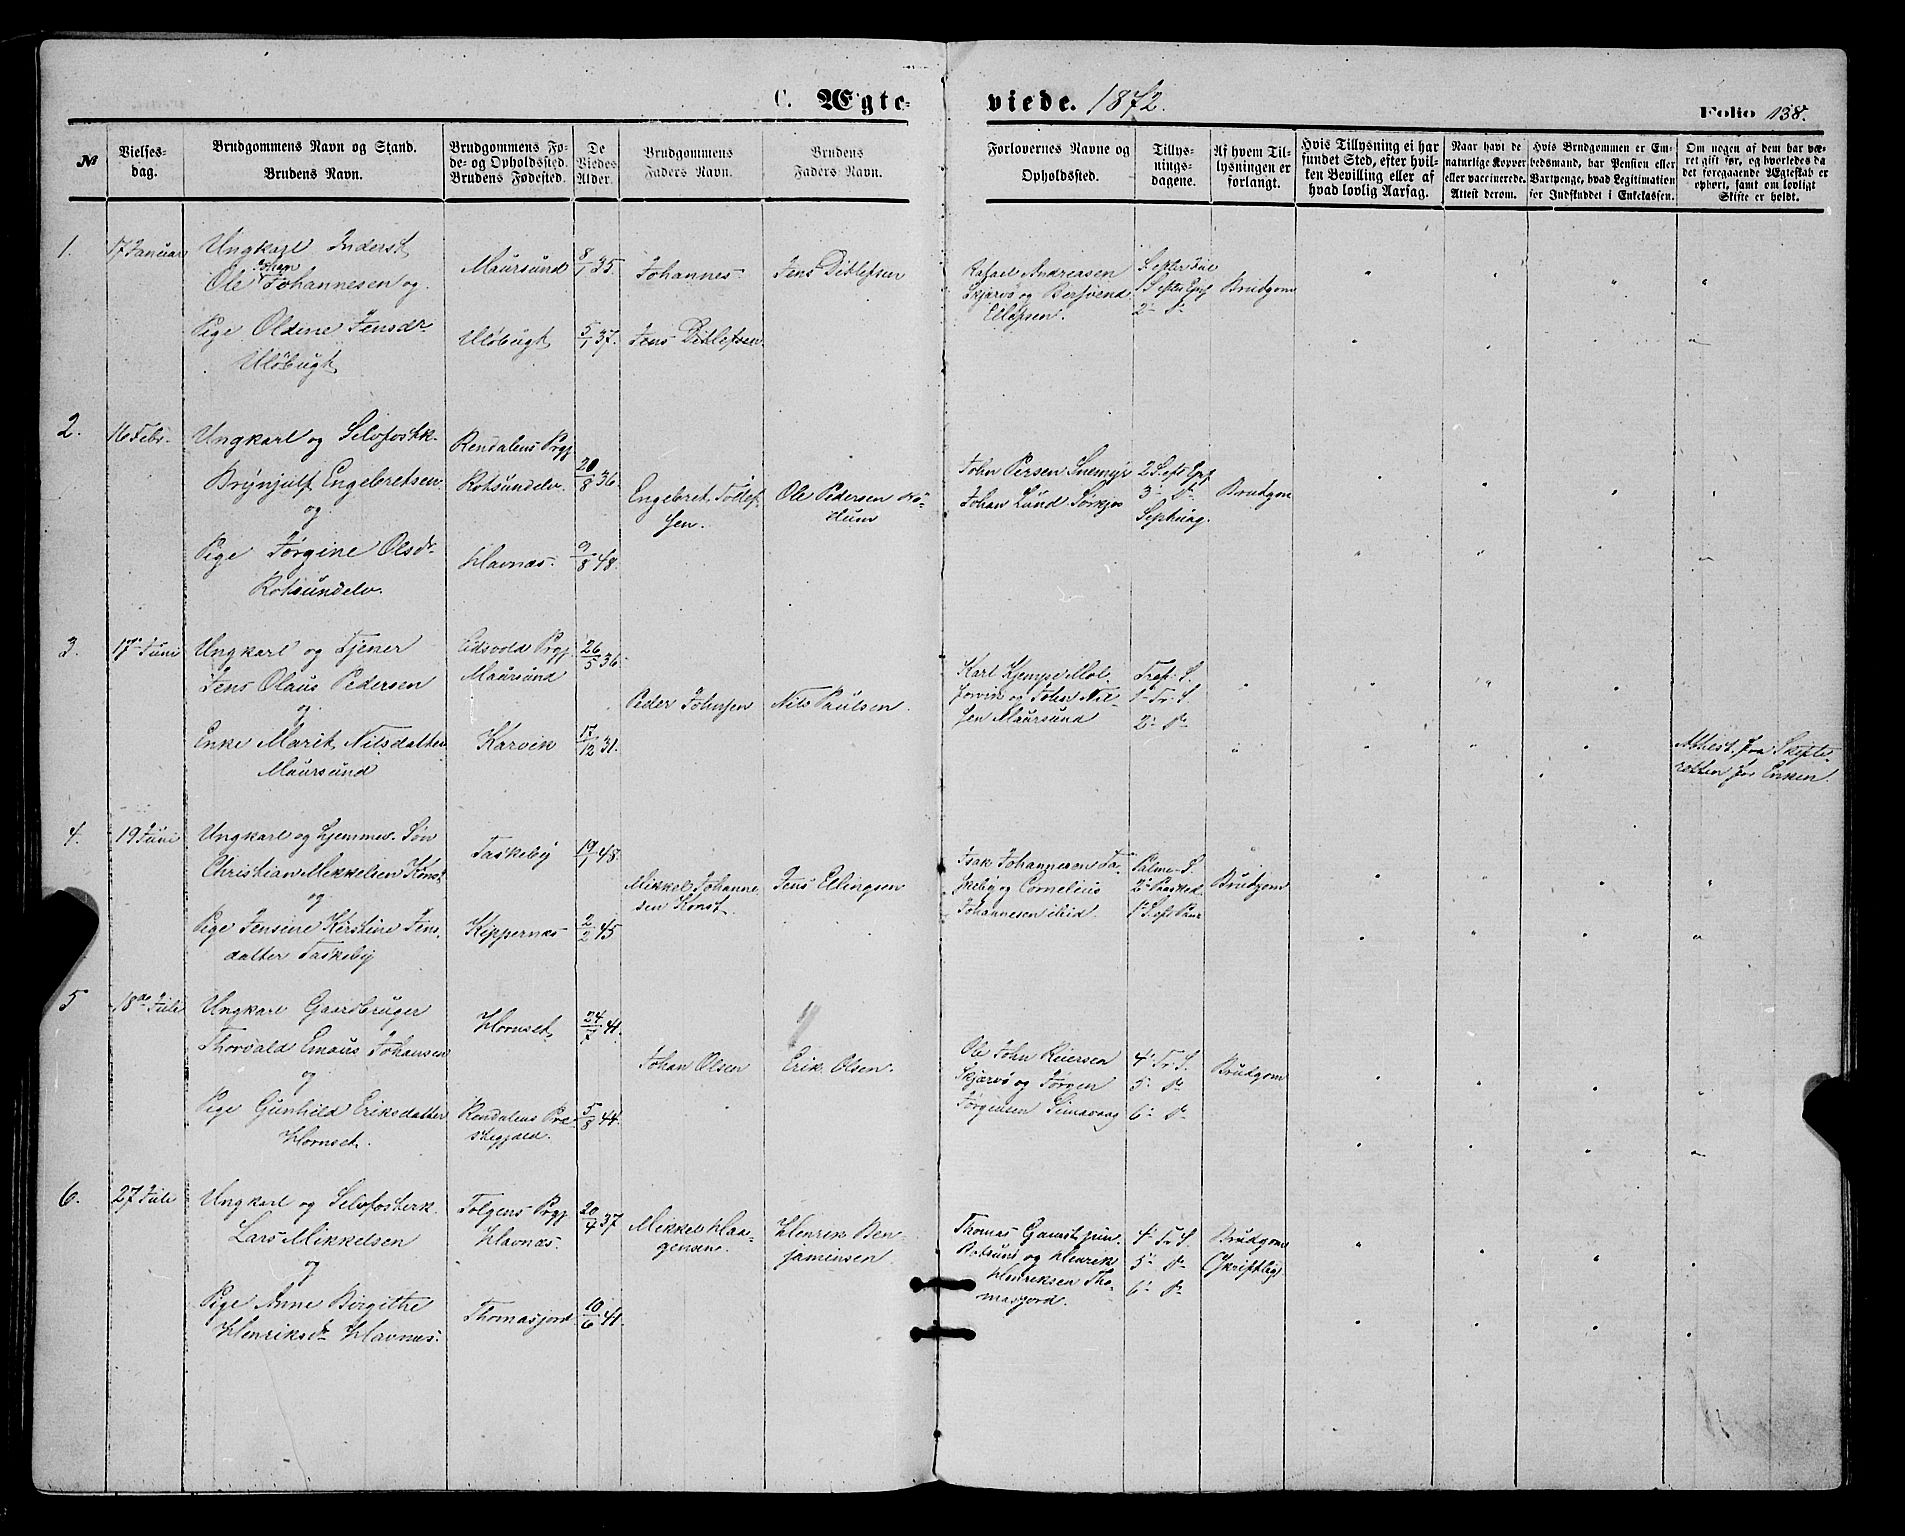 C. Ægte-
viede. 1872.
Folio 138.
№
Vielses-
dag.
Brudgommens Navn og Stand.
Brudens Navn.
Brudgommens Fø-
de- og Opholdssted.
Brudens Fødested.
De
Viedes
Alder.
Brudgommens
Faders Navn.
Brudens
Faders Navn.
Forlovernes Navne og
Opholdssted.
Tillys-
nings-
dagene.
Af hvem Til-
lysningen er
forlangt.
Hvis Tillysning ei har
fundet Sted, efter hvil-
ken Bevilling eller af
hvad lovlig Aarsag.
Naar havt de
naturlige Kopper
eller vaccinerede.
Attest derom.
Hvis Brudgommen er Em-
bedsmand, har Pension eller
Vartpenge, hvad Legitimation
for Indskuddet i Enkekassen.
Om nogen af dem har væ-
ret gift før, og hvorledes da
det foregaaende Ægteskab er
ophørt, samt om lovligt
Skifte er holdt.
1.
17 Januar
Ungkarl Inderst
Johan
Ole Johannesen og
Pige Oldine Jensdr
Uløbugt
Maursund
Uløbugt
8/1 35.
5/1 37.
Johannes
Jens Ditlefsen
Jens Ditlefsen
Rafael Andreasen
Skjærvø og
Ellefsen.
S. efter
S. efter Epif
2- D-
Brudgom
2.
16 Febr.
Ungkarl og Selvfosthk.
Brynjulf Engebretsen
og
Pige Jørgine Olsdr
Rotsundelv.
Rendalens Prgj
Rotsundelv.
Havnæs.
20/8 36.
9/8 48.
Engebret Tollef-
sen.
Ole Pedersen
John Persen Snemyr
Johan Lund Sørkjos
2 S. eft Epf
3- D-
Septuag.
Brudgom
3.
17de Juni
Ungkarl og Tjener
Jens Olaus Pedersen
og
Enke Marit Nilsdatter
Maursund
Eidsvolds Prgj.
Maursund
Karvik
26/5 36.
17/12 31.
Peder Johnsen
Nils Paulsen.
Karl Kjempe Mol-
forvik og John Nil-
sen Maursund
Tref. S.
1- Tr. S.
2- D-
Athest. fra Skifte-
retten for Enken.
4.
19 Juni
Ungkarl og hjemmev. Søn
Christian Mikkelsen Konst
og
Pige Jensine Kirstine Jens-
datter Taskeby
Taskeby
Kippernæs
19/1 48.
2/2 45
Mikkel Johanne-
sen Konst.
Jens Ellingsen
Isak Johannesen Ta-
skeby og Cornelius
Johannesen ibid.
Palme S.
2- Paasked.
1- S. eft Paas
Brudgom
5
18de Juli
Ungkarl Gaardbruger
Thorvald Emaus Johansen
og
Pige Gunhild Eriksdatter
Hornset.
Hornset
Rendalens Præ-
stegjæld.
24/7 41.
5/8 44.
Johan Olsen
Erik Olsen.
Ole John Reiersen
Skjærvø og Jørgen
Jørgensen Simavaag
4- Tr. S.
5- D-
6- D-
Brudgom
6.
27 Juli
Ungkarl og Selvfosterk.
Lars Mikkelsen
og
Pige Anne Birgithe
Henriksdr Havnæs.
Tolgens Prgj
Havnæs.
Thomasjord.
20/7 37
10/6 41.
Mikkel Haa-
gensen.
Henrik Ben-
jaminsen
Thomas Gamst jun.
Rotsund og Henrik
Henriksen Tho-
masjord.
4- Tr S.
5- D-
6- D-
Brudgom
(skriftlig)